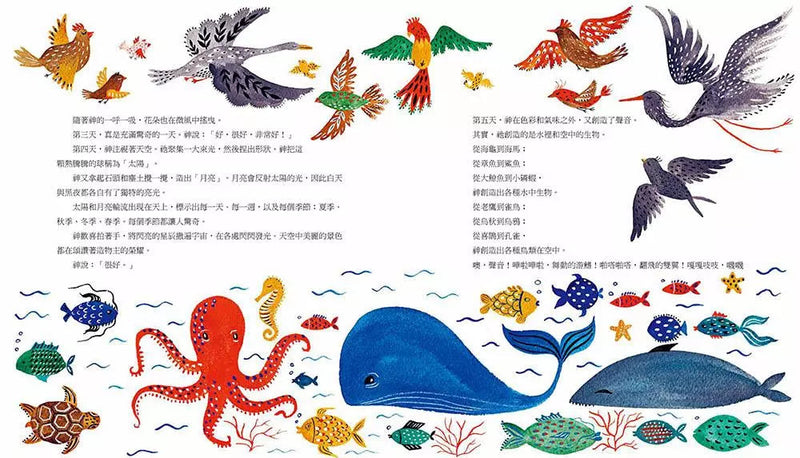 隨著神的一呼一吸,花朵也在微風中搖曳。
第三天,真是充滿驚奇的一天。神說:「好,很好,非常好!」
第四天,神注視著天空。祂聚集一大束光,然後捏出形狀。神把這
顆熱騰騰的球稱為「太陽」。
神又拿起石頭和塵土攪一攪,造出「月亮」。月亮會反射太陽的光,因此白天
與黑夜都各自有了獨特的亮光。
太陽和月亮輪流出現在天上,標示出每一天、每一週,以及每個季節:夏季、
秋季、冬季、春季。每個季節都讓人驚奇。
神歡喜拍著手,將閃亮的星辰撒遍宇宙,在各處閃閃發光。天空中美麗的景色
都在頌讚著造物主的榮耀。
神說:「很好。」
第五天,神在色彩和氣味之外,又創造了聲音。
其實,祂創造的是水裡和空中的生物。
從海龜到海馬;
從章魚到鯊魚;
從大鯨魚到小磷蝦,
神創造出各種水中生物。
從老鷹到雀鳥,
從烏秋到烏鴉;
從喜鵲到孔雀,
神創造出各種鳥類在空中。
噢,聲音!嘩啦嘩啦,舞動的游鰭!啪咯啪咯,翻飛的雙翼!嘎嘎吱吱,嘰嘰